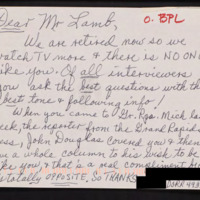 Dear Mr Lamb,
O. BPL
We are retired now so we
watch TV more & there is NO ONE
like you. Of all interviewers
you ask the best questions with the
best tone & following info!
When you came to Gr. Rap. Mich last
week, the reporter from the Grand Rapids
Press, John Douglas covered you & then
a whole column to his wish to be
like you, & that is a real compliment
is totally OPPOSITE. So THANKS
DORR 493